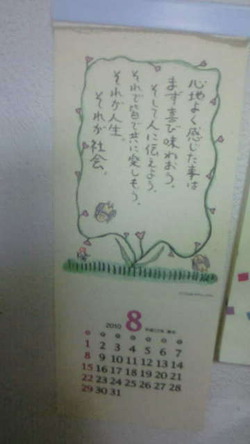 心地よく感じた事は
まず喜び味わおう、
そして人に伝えよう。
それで皆で共に楽しもう、
それが人生、
それが社会。
2010 8
1 2 3 4 5 6 7
8 9 10 11 12 13 14
15 16 17 18 19 20 21
22 23 24 25 26 27 28
29 30 31